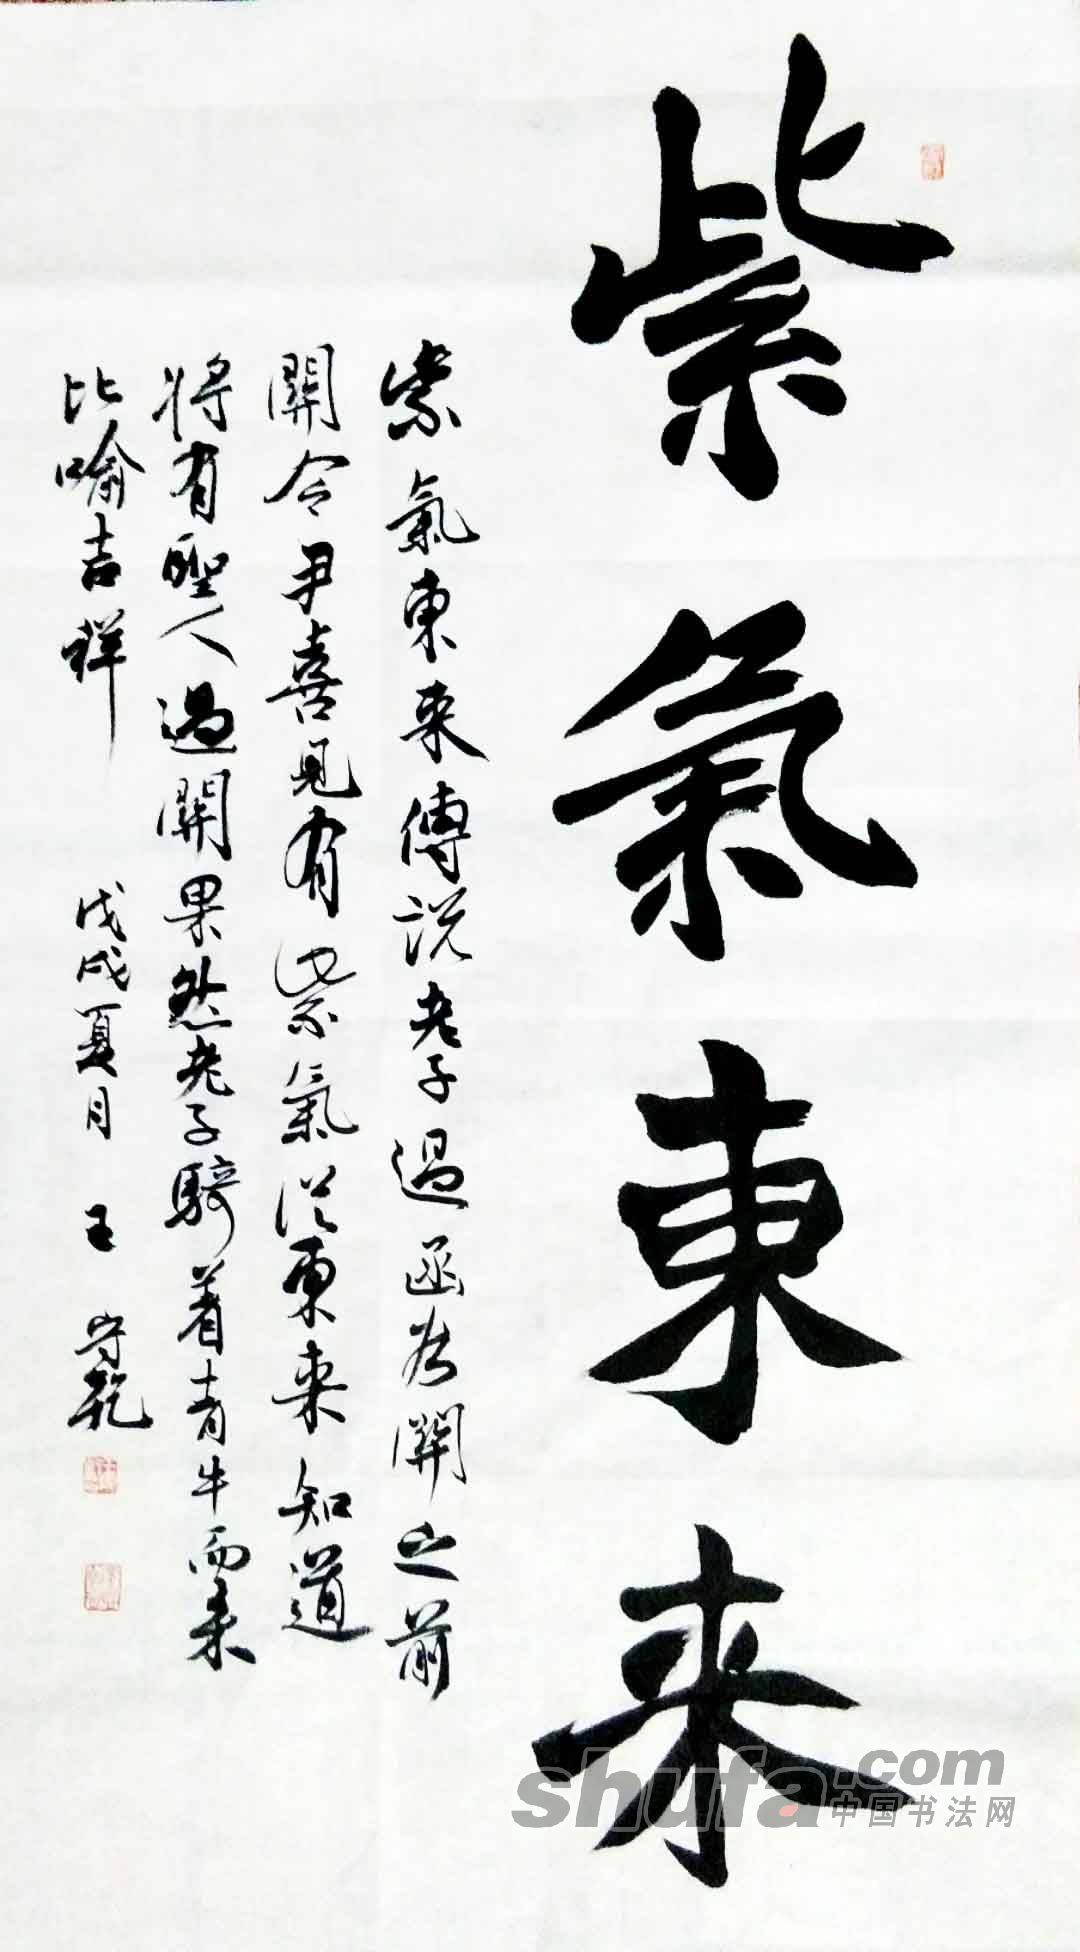 紫氣東来
紫氣東来傳说老子過函谷関之前
関令尹喜見有紫氣從東来知道
将有聖人過関果然老子騎着青牛而来
比喻吉祥 戊戌夏月 王守乾
shufa.com
中国书法网